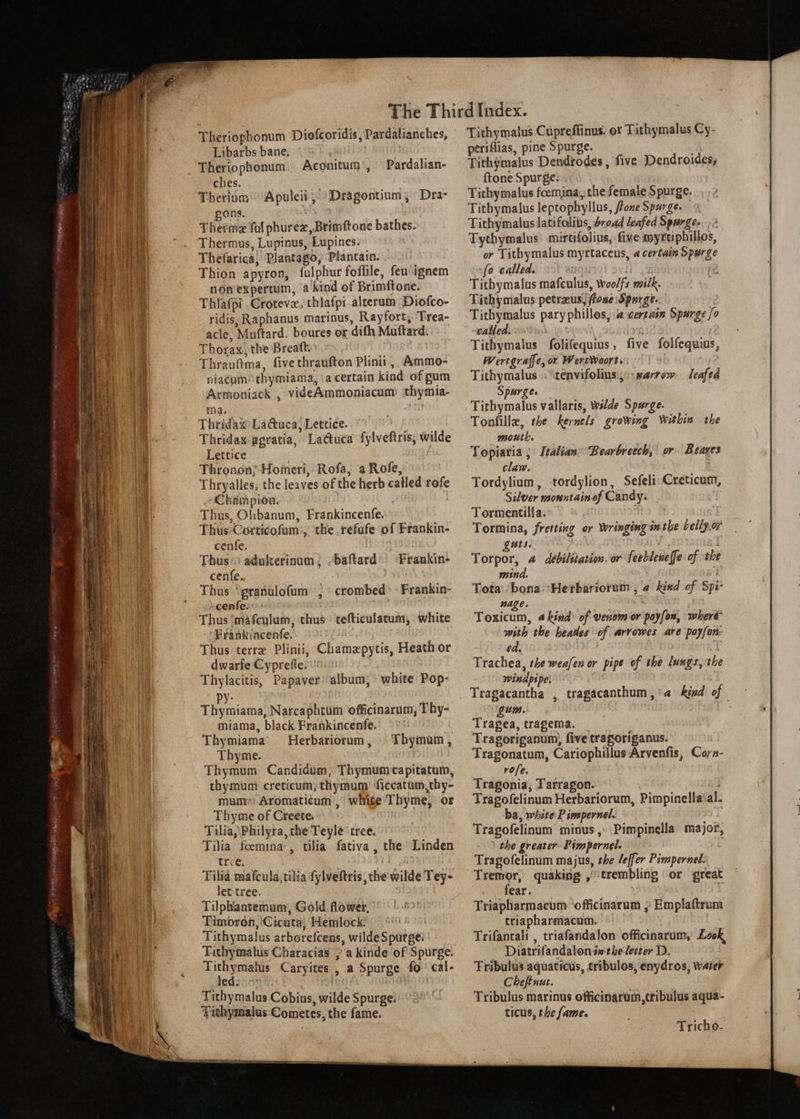 The Third Index.
Theriophonum Dioſcoridis, Pardalianches,
Libarbs bane.
Theriophonum Aconitum, Pardalian-
ches.
Therium Apuleii, Dragontium, Dra-
gons.
Thermæ ſulphureæ, Brimſtone bathes.
Thermus, Lupinus, Lupines.
Theſarica, Plantago, Plantain.
Thion apyron, ſulphur foſſile, ſeu ignem
non expertum, a kind of Brimſtone.
Thlaſpi Crotevæ, thlaſpi alterum Dioſco-
ridis, Raphanus marinus, Rayfort, Trea-
acle, Muſtard. boures or diſh Muſtard.
Thorax, the Breaſt.
Thrauſtma, five thrauſton Plinii, Ammo-
niacum thymiama, a certain kind of gum
Armoniack, vide Ammoniacum thymia-
ma.
Thridax Lactuca, Lettice.
Thridax agratia, Lactuca ſylveſtris, wilde
Lettice
Thronon, Homeri, Roſa, a Roſe,
Thryalles, the leaves of the herb called roſe
Champion.
Thus, Olibanum, Frankincenſe.
Thus Corticoſum, the refuſe of Frankin-
cenſe.
Thus adulterinum, baſtard Frankin-
cenſe.
Thus granuloſum, crombed Frankin-
cenſe.
Thus maſculum, thus teſticulatum, white
Frankincenſe.
Thus terræ Plinii, Chamæpytis, Heath or
dwarfe Cypreſſe.
Thylacitis, Papaver album, white Pop-
py.
Thymiama, Narcaphtum officinarum, Thy-
miama, black Frankincenſe.
Thymiama Herbariorum, Thymum,
Thyme.
Thymum Candidum, Thymum capitatum,
thymum creticum, thymum ſiccatum, thy-
mum Aromaticum, white Thyme, or
Thyme of Creete.
Tilia, Philyra, the Teyle tree.
Tilia fœmina, tilia ſativa, the Linden
tree.
Tilia maſcula, tilia ſylveſtris, the wilde Tey-
let tree.
Tilphantemum, Gold flower,
Timoron, Cicuta, Hemlock.
Tithymalus arboreſcens, wilde Spurge.
Tithymalus Characias, a kinde of Spurge.
Tithymalus Caryites, a Spurge ſo cal-
led.
Tithymalus Cobius, wilde Spurge.
Tithymalus Cometes, the ſame.
Tithymalus Cupreſſinus. or Tithymalus Cy-
periſſias, pine Spurge.
Tithymalus Dendrodes, five Dendroides,
ſtone Spurge.
Tithymalus fœmina, the female Spurge.
Tithymalus leptophyllus, ſtone Spurge.
Tithymalus latifolius, broad leafed Spurge.
Tythymalus mirtifolius, five myrtiphillos,
or Tithymalus myrtaceus, a certain Spurge
ſo called.
Tithymalus maſculus, Woolfs milk.
Tithymalus petræus, ſtone Spurge.
Tithymalus paryphillos, a certain Spurge ſo
called.
Tithymalus foliſequius, five ſolſequius,
Wertgraſſe, or Wertwoort.
Tithymalus tenvifolius, narrow leafed
Spurge.
Tithymalus vallaris, wilde Spurge.
Tonſillæ, the kernels growing within the
mouth.
Topiaria, Italian Bearbreech, or Beares
claw.
Tordylium, tordylion, Seſeli Creticum,
Silver mountain of Candy.
Tormentilla.
Tormina, fretting or Wringing in the belly or
guts.
Torpor, a debilitation or feebleneſſe of the
mind.
Tota bona Herbariorum, a kind of Spi-
nage.
Toxicum, a kind of venom or poyſon, where
with the heades of arrowes are poyſon-
ed.
Trachea, the weaſen or pipe of the lungs, the
windpipe.
Tragacantha, tragacanthum, a kind of
gum.
Tragea, tragema.
Tragoriganum, five tragoriganus.
Tragonatum, Cariophillus Arvenſis, Corn-
roſe.
Tragonia, Tarragon.
Tragoſelinum Herbariorum, Pimpinella al.
ba, white Pimpernel.
Tragoſelinum minus, Pimpinella major,
the greater Pimpernel.
Tragoſelinum majus, the leſſer Pimpernel.
Tremor, quaking, trembling or great
fear.
Triapharmacum officinarum, Emplaſtrum
triapharmacum.
Triſantali, triaſandalon officinarum, Look
Diatriſandalon in the letter D.
Tribulus aquaticus, tribulos, enydros, water
Cheſtnut.
Tribulus marinus officinarum, tribulus aqua-
ticus, the ſame.
Tricho-